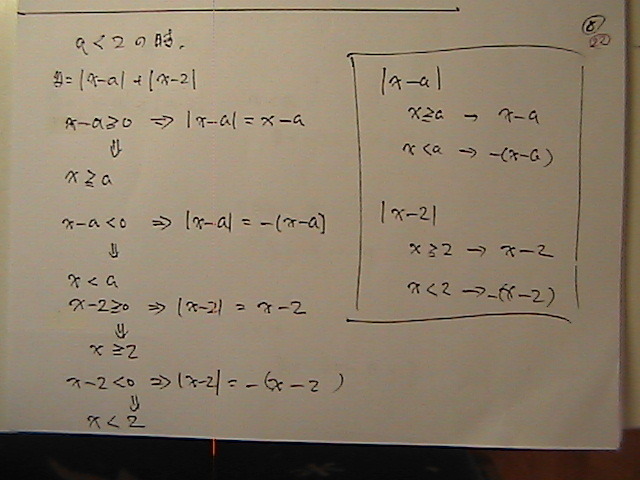 a<2の時、
y=|x-a|+|x-2|
x-a≧0 ⇒ |x-a|=x-a
⇓
x≧a
x-a<0 ⇒ |x-a|=-(x-a]
⇓
x<a
x-2≧0 ⇒ |x-2|=x-2
⇓
x≧2
x-2<0 ⇒ |x-2|=-(x-2)
⇓
x<2
|x-a|
x≧a → x-a
x<a → -(x-a)
|x-2|
x≧2 → x-2
x<2 → -(x-2)